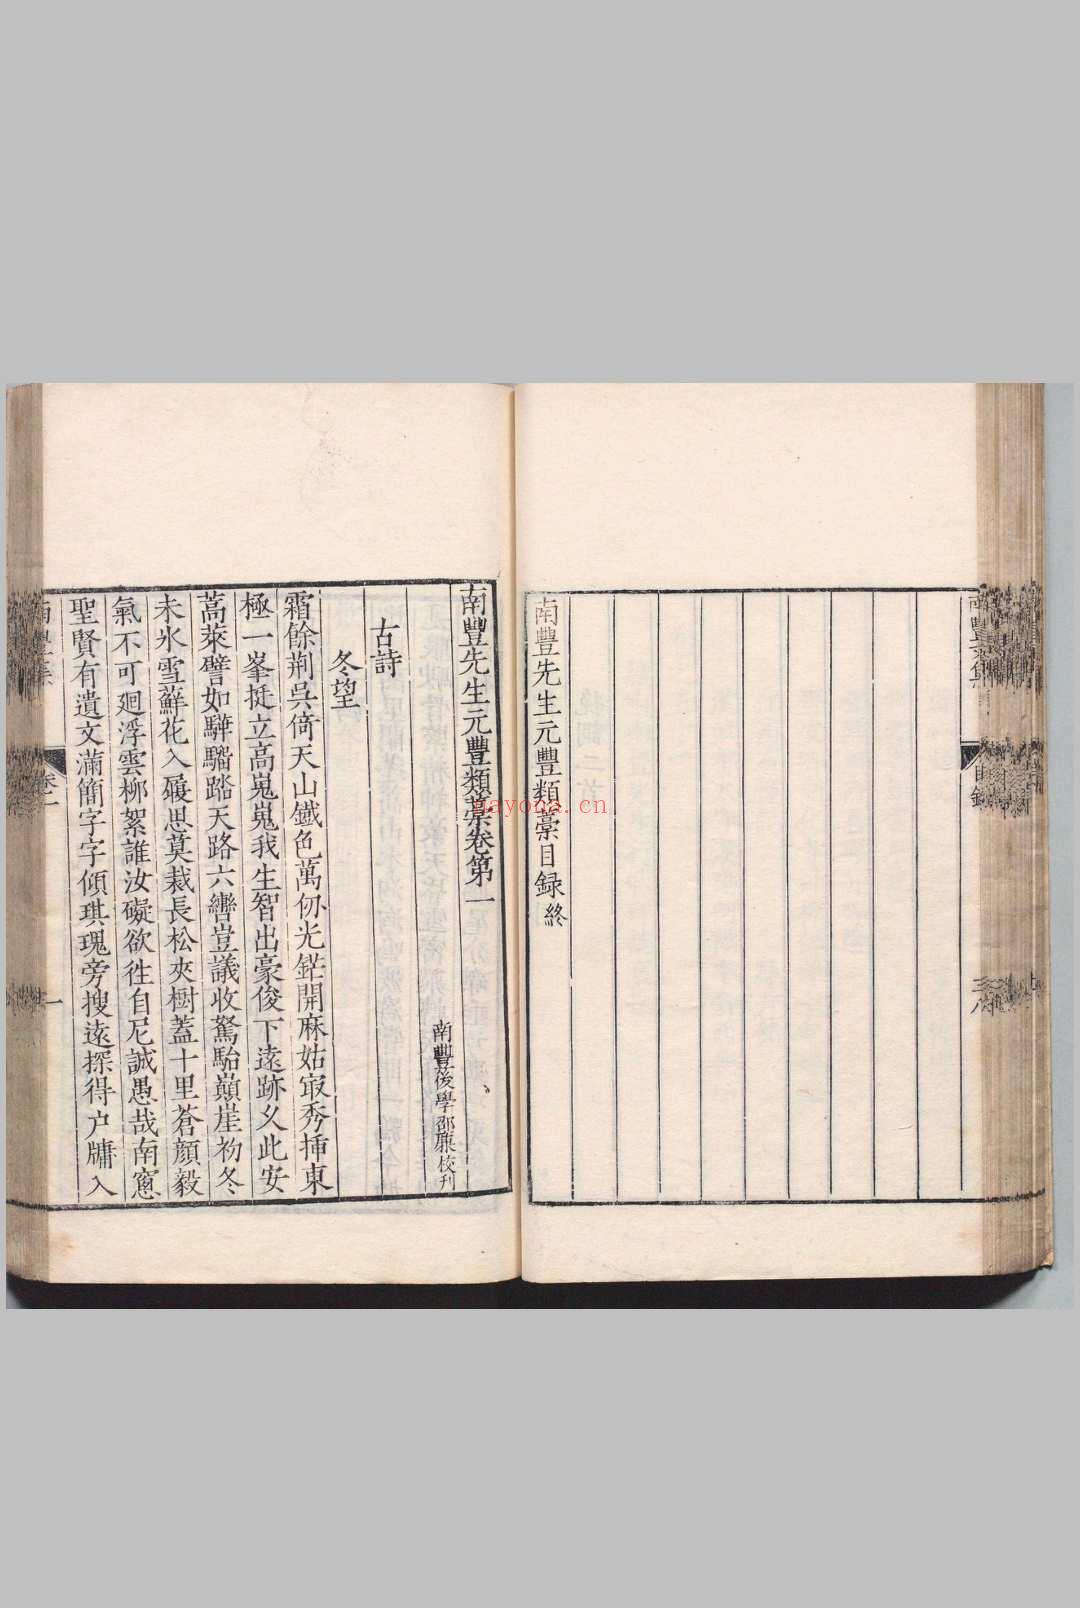 南豐先生元豐類藁目録終
南豐先生元豐類藁卷第一
南豐後學邵廉校刋
古詩
冬望
霜餘荆吳倚天山鐵色萬仞光鋩開麻姑㝡秀揷東
極一峯挺立高嵬嵬我生智出豪俊下遠跡乆此安
蒿萊譬如驊騮踏天路六轡豈議收駑駘巔崖初冬
未氷雪蘚花入履思莫裁長松夾樹蓋十里蒼顏毅
氣不可廻浮雲柳絮誰汝礙欲徃自尼誠愚哉南窻
聖賢有遺文滿簡字字傾琪瑰旁搜遠探得户牖入
目録
卷一
一
nayona.cn